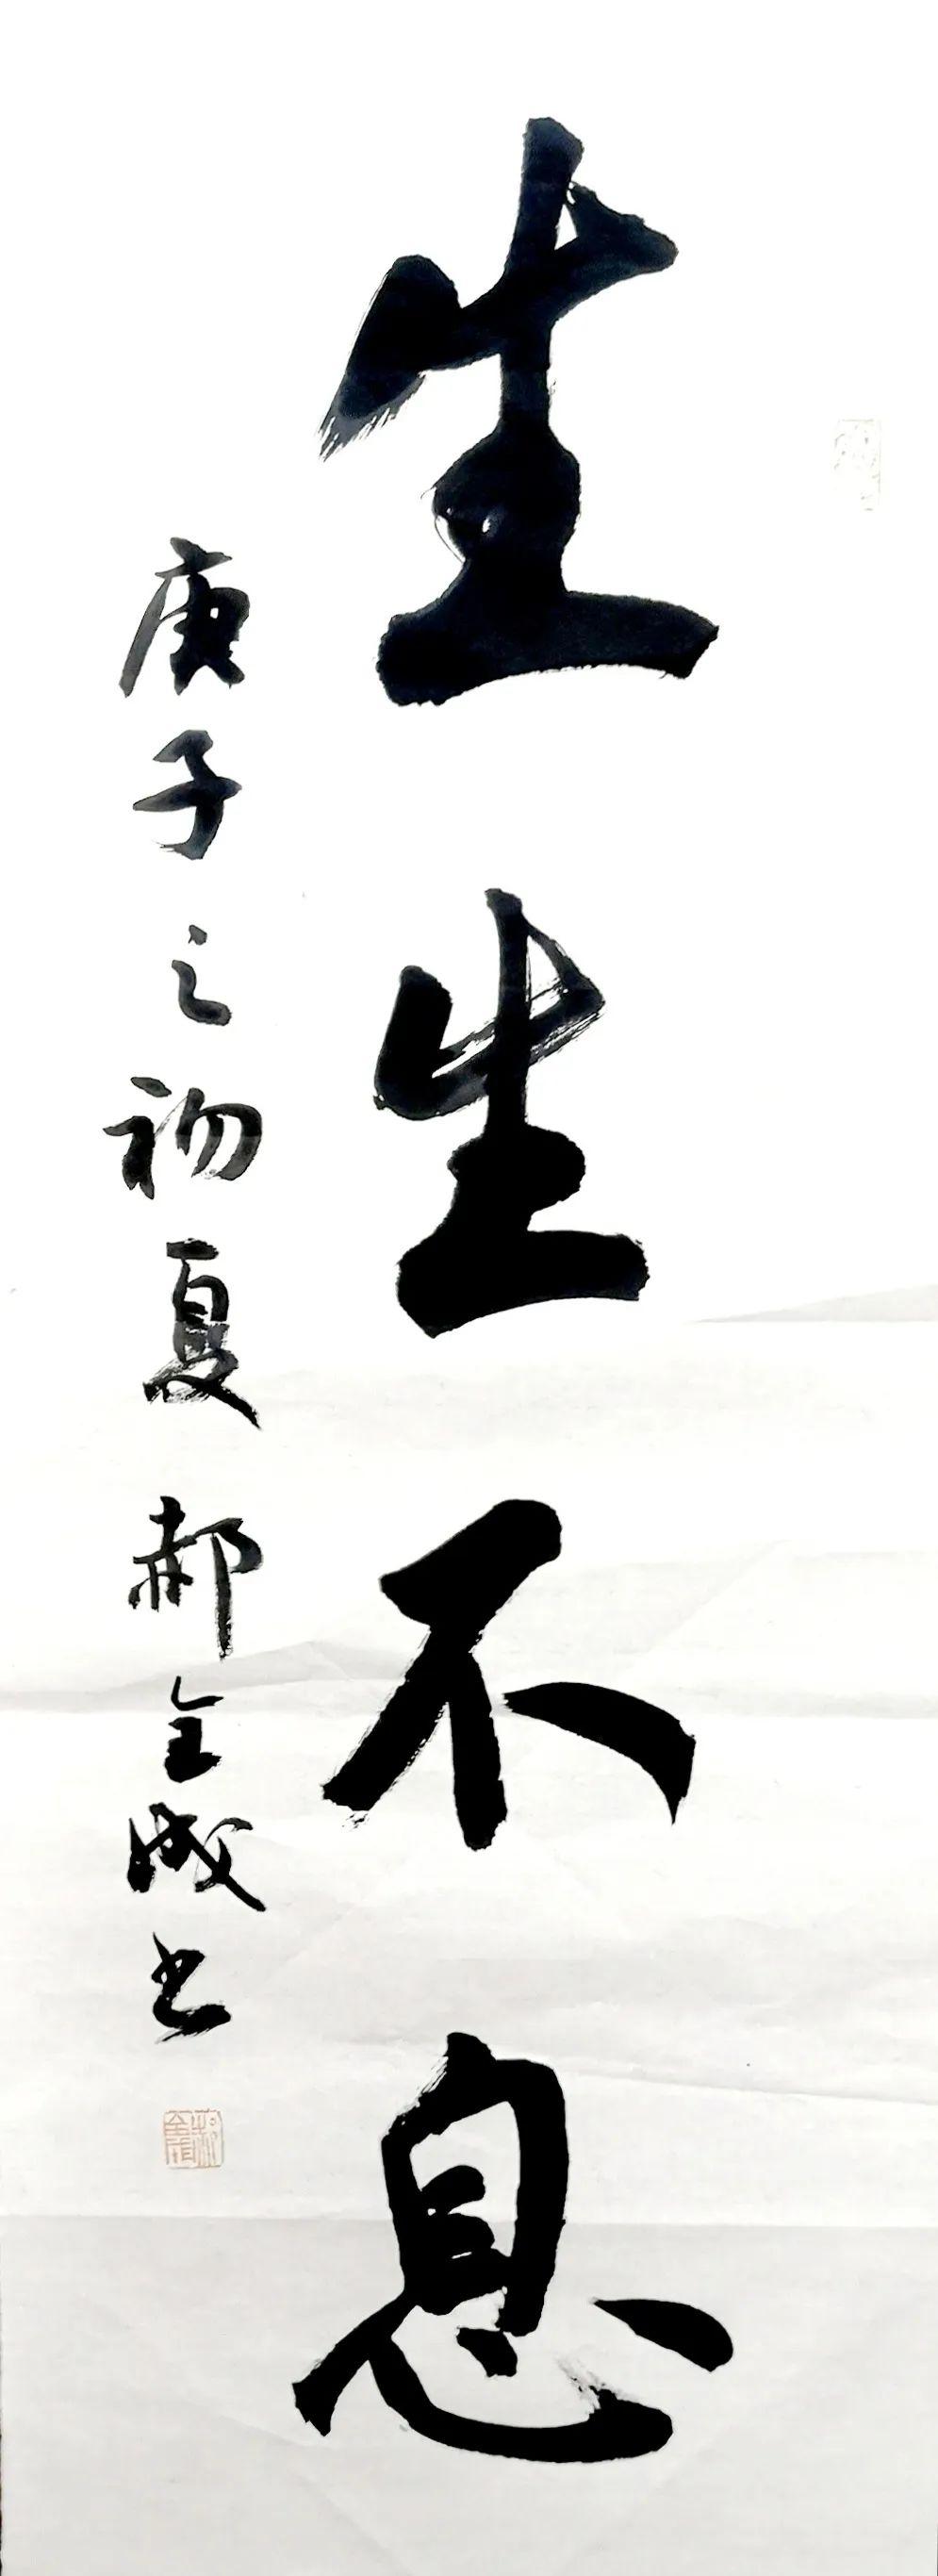 生生不息
庚子之初夏 郝全成书